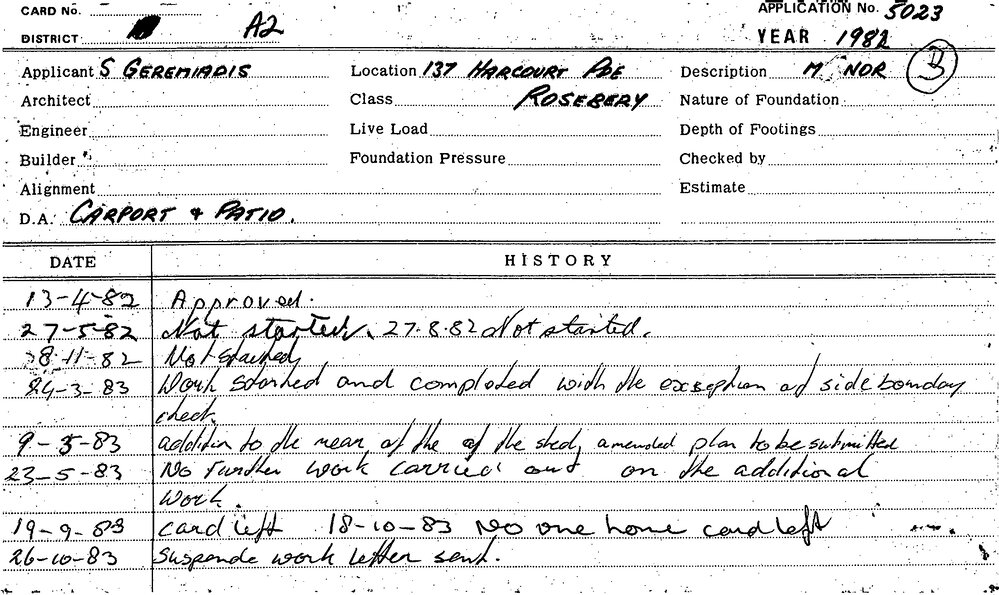 CARD No. APPLICATION No. 5023
DISTRICT A2 YEAR 1982
Applicant S GEREMIADIS Location 137 HARCOURT PDE Description MINOR B
Architect Class ROSEBERY Nature of Foundation
Engineer Live Load Depth of Footings
Builder Foundation Pressure Checked by
Alignment Estimate
D.A. CARPORT & PATIO.
DATE HISTORY
13-4-82 Approved.
27-5-82 Not started. 27.8.82 Not started.
8-11-82 Not started
24-3-83 Work started and completed with the exception of side bounday
check.
9-5-83 addition to the rear of the of the shed, amended plan to be submitted
23-5-83 No further work carried out on the additional
work.
19-9-83 card left 18-10-83 No one home card left
26-10-83 Suspende work letter sent.